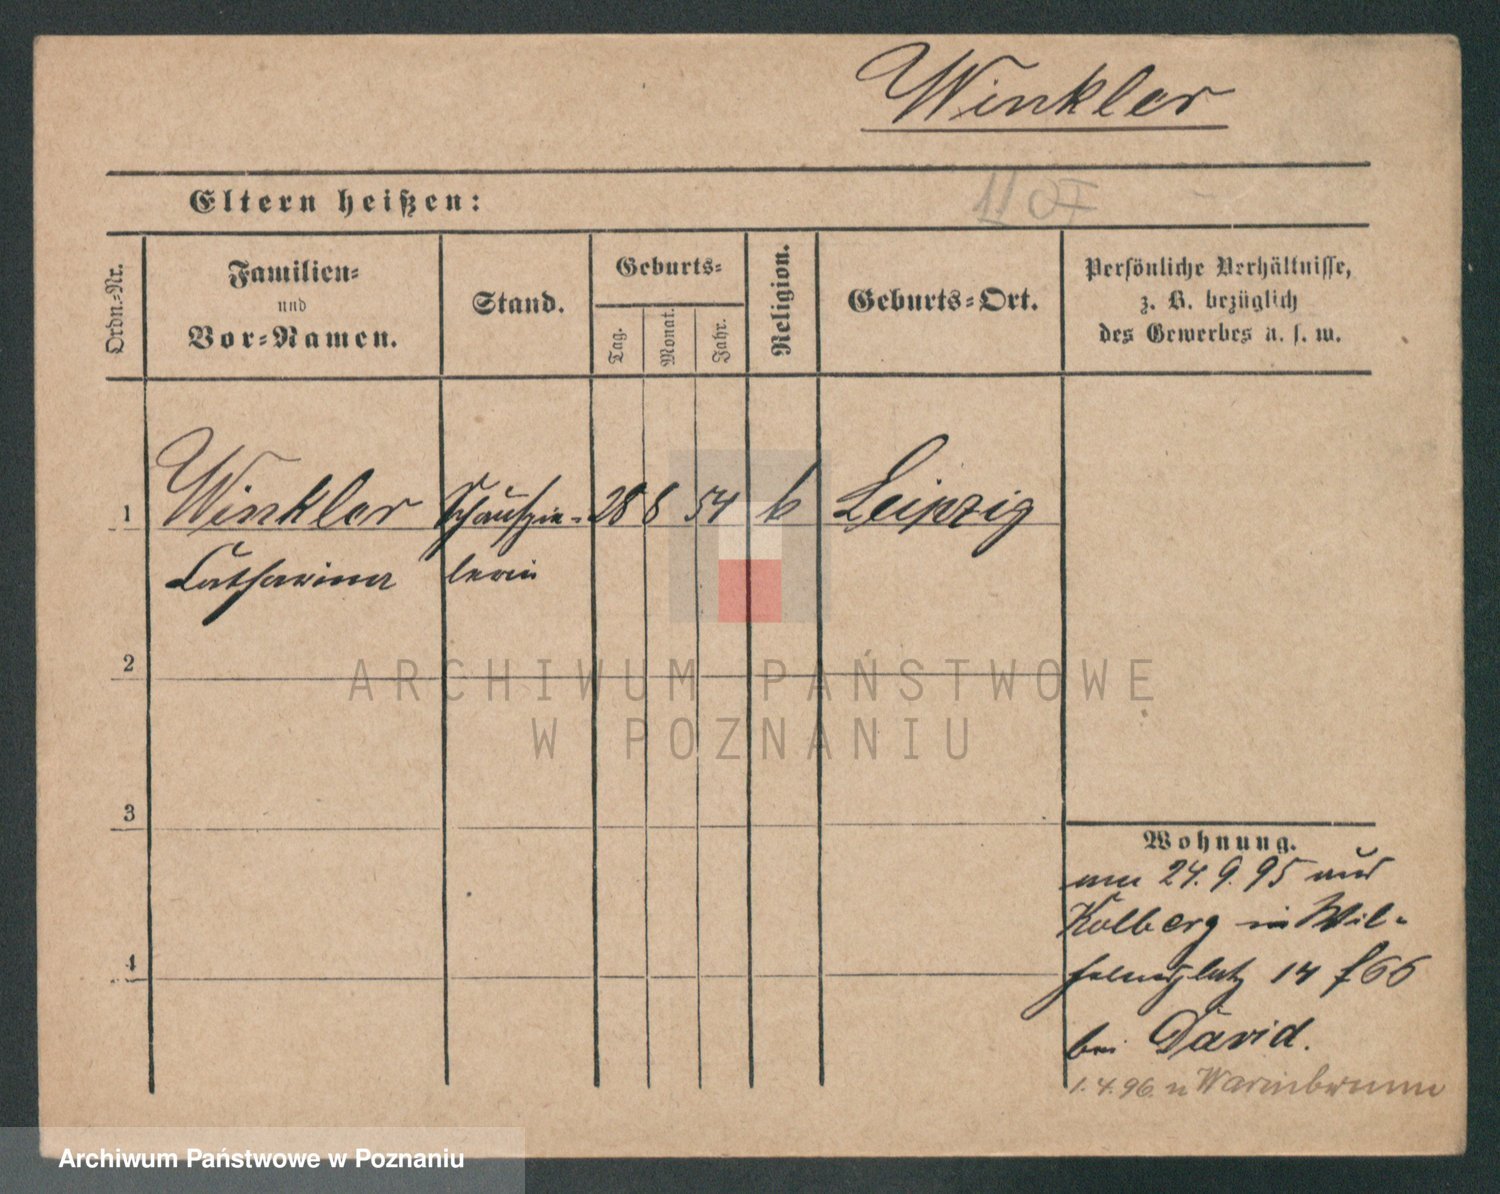 Winkler
Eltern heißen:
Ordn.-Nr.
Familien-
und
Vor-Namen.
Stand.
Geburts-
Tag.
Monat.
Jahr.
Religion.
Geburts-Ort.
Persönliche Verhältnisse,
z. B. bezüglich
des Gewerbes u. s. w.
1 Winkler Schauspie- 28 8 54 k Leipzig
Catharina lerin
2
ARCHIWUM PAŃSTWOWE
W POZNANIU
3
4
Wohnung.
24.9.95 aus
Kolberg in Wil-
helmsplatz 14
bei David.
1.4.96. n Warmbrunn
Archiwum Państwowe w Poznaniu